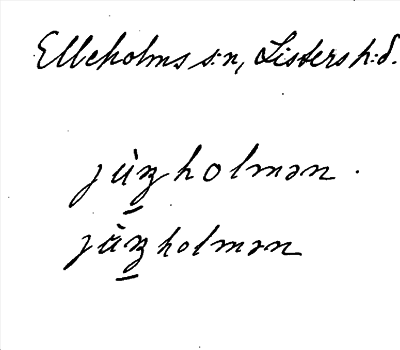 Elleholms s:n, Listers h:d.
jùꜧholmən.
jǜꜧholmən